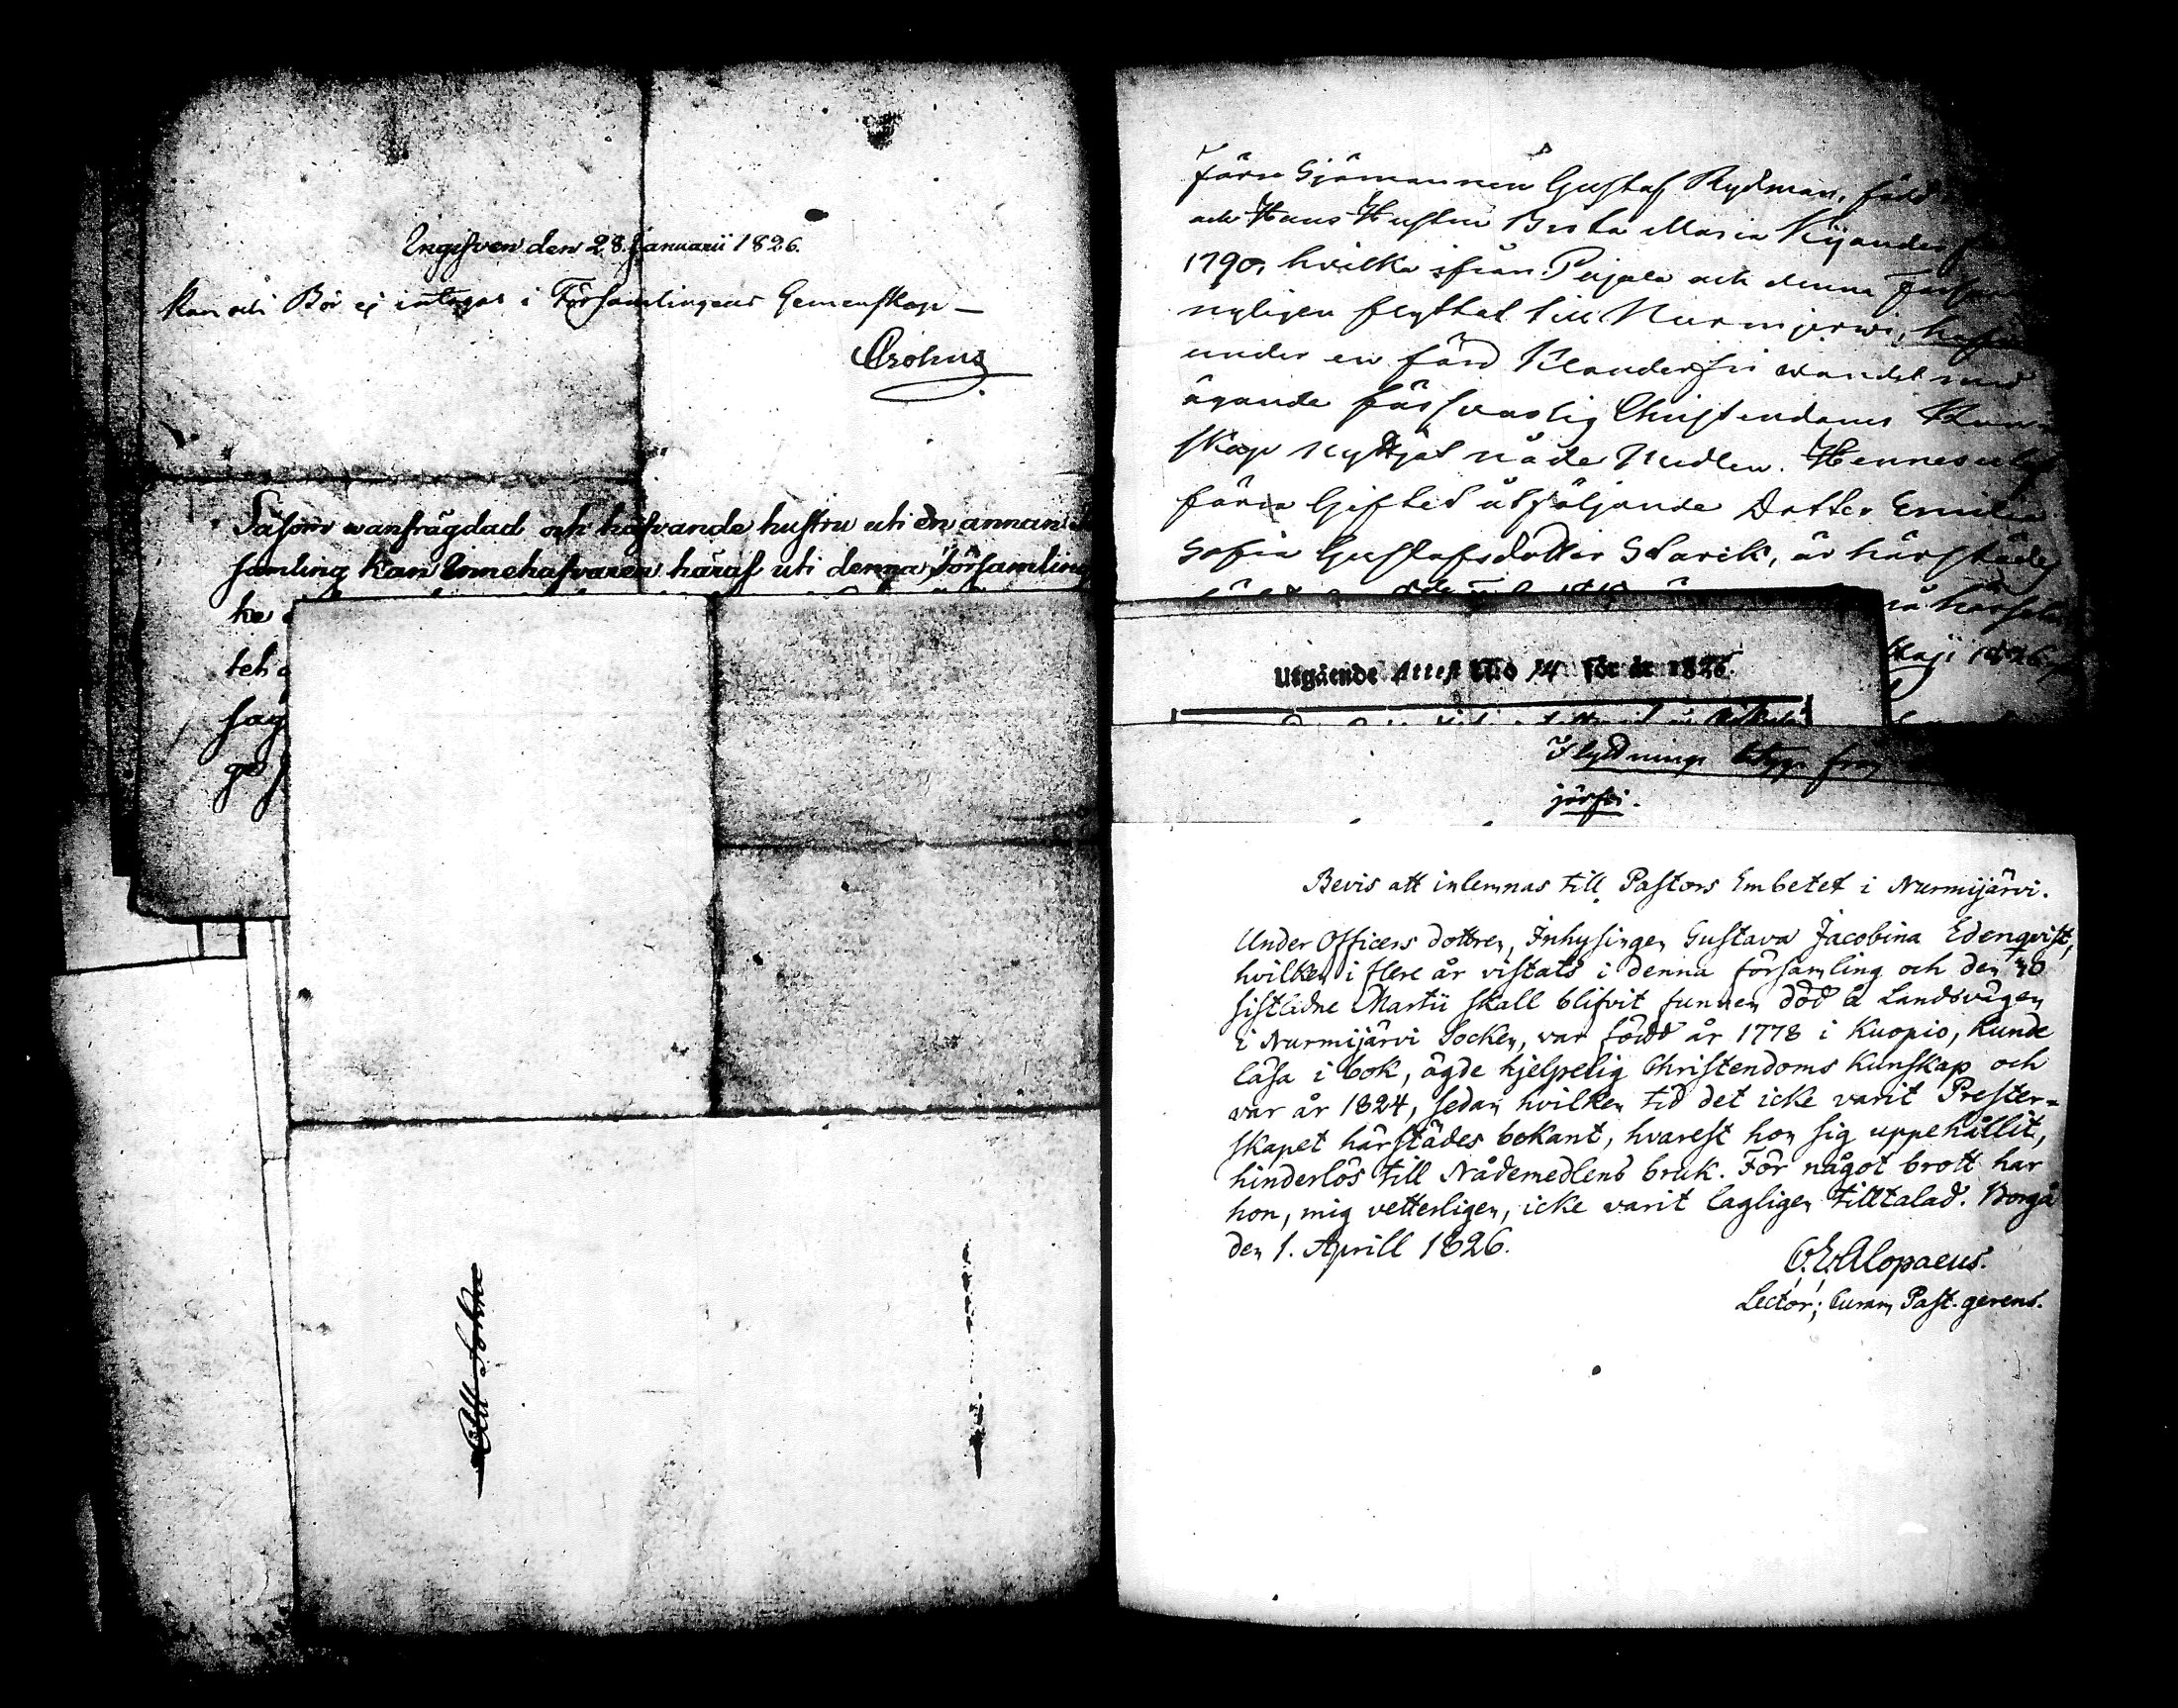 Ingifven den 28 Januarii 1826.
Kan och Bör ej intagas i Församlingens Gemenskap —
Crohns
Såsom wanfrägdad och hafvande hustru uti en annan
samling kan Innehafvaren häraf uti denna Församling
ke
teh
say
ge
Att Sökn
Förra Sjömannen Gustaf Rydman, född
och Hans Hustru Brita Maria Kijander
1790, hvilka ifrån Perjala och denna Församl
nyligen flyttat till Nurmijerwi, hafva
under en färd Klanderfri wandel med
ägande försvarlig Christendoms Kun
skap nyttjat nåde Medlen. Hennes
förra Giftet åtföljande Dotter Emilia
Sofia Gustafsdotter Starck, är härstädes
Maji 1826
Utgående Attest N:o 14 för år 1826.
Flyttnings betyg från
järfvi.
Bevis att inlemnas till Pastors Embetet i Nurmijärvi.
Under Officers dottren, Inhysingen Gustava Jacobina Edenqvist,
hvilken i flere år vistats i denna församling och den 30
sistledne Martii skall blifvit funnen död å Landsvägen
i Nurmijärvi Socken, var född år 1778 i Kuopio, kunde
läsa i bok, ägde hjelpelig Christendoms kunskap och
var år 1824, sedan hvilken tid det icke varit Prester-
skapet härstädes bekant, hvarest hon sig uppehållit,
hinderlös till Nådemedlens bruk. För något brott har
hon, mig vetterligen, icke varit lagligen tilltalad. Borgå
den 1. Aprill 1826.
C. E. Alopaeus.
Lector; Curam Past. gerens.